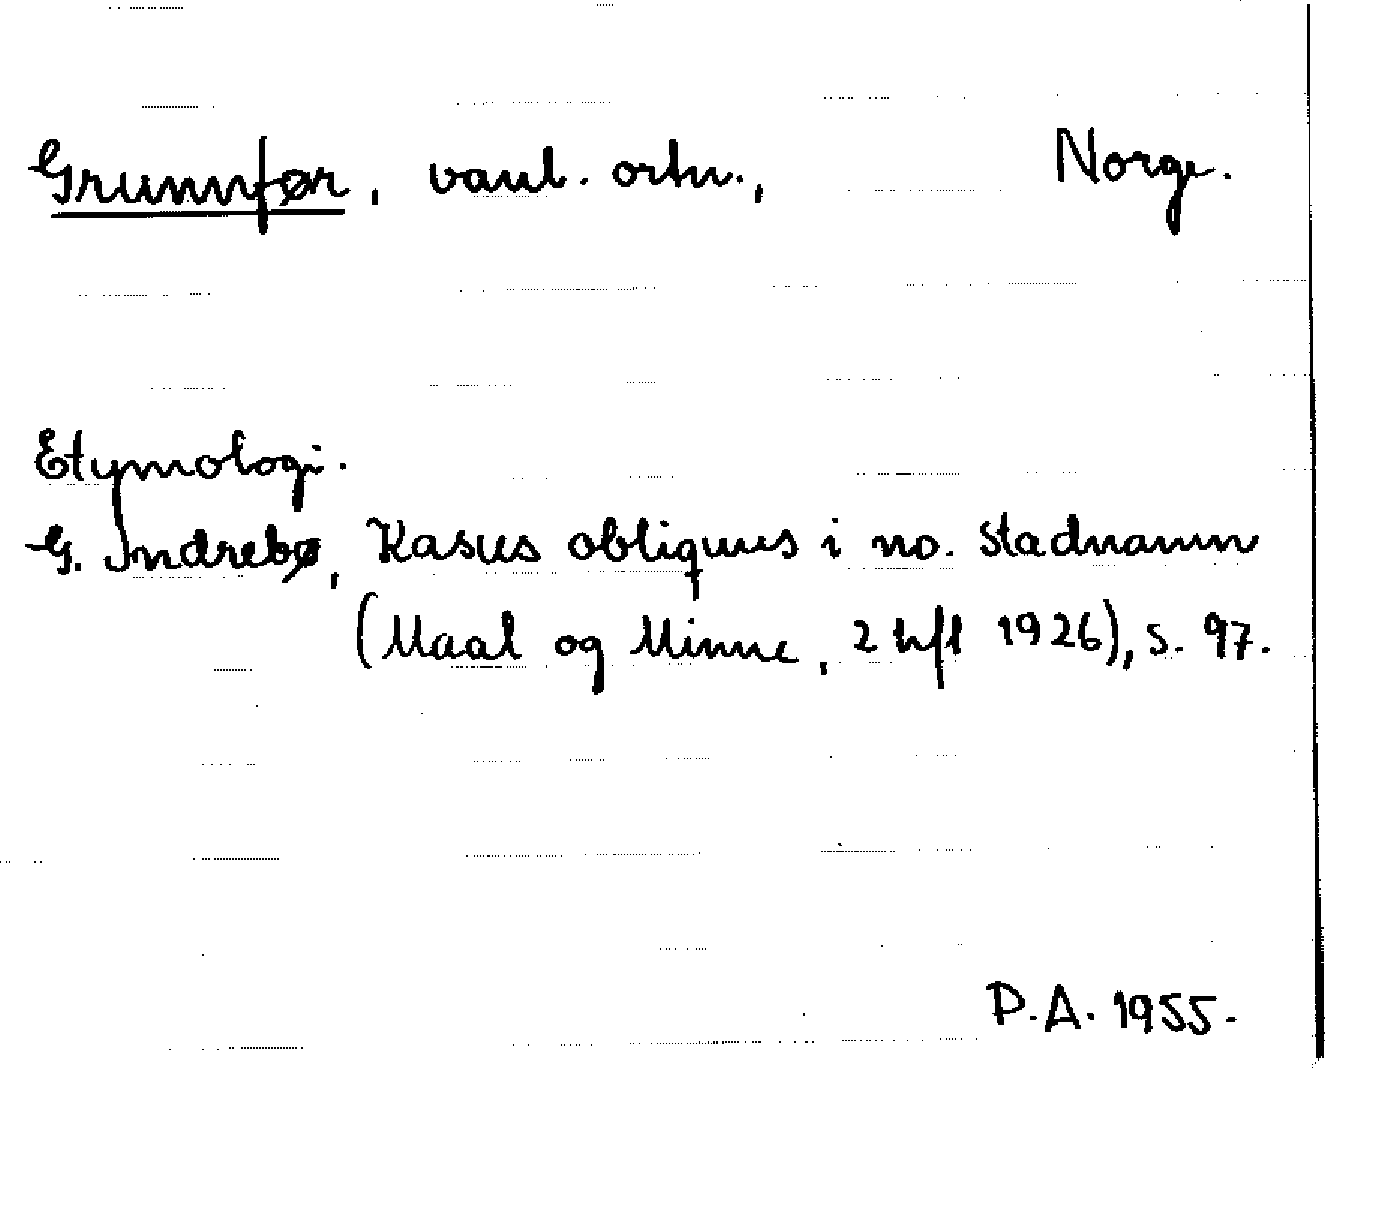 Grunnfør, vanl. ortn., Norge.
Etymologi.
G. Indrebø, Kasus obliquus i no. stadnamn
(Maal og Minne, 2 hft 1926), s. 97.
P.A. 1955.